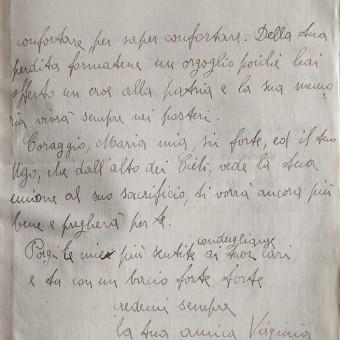 confortare, per saper confortare. Della tua
perdita formatene un orgoglio poichè hai
offerto un eroe alla patria e la sua memo-
ria vivrà sempre nei posteri.
Coraggio, Maria mia, sii forte, ed il tuo
Ugo, che dall'alto dei Cieli, vede la tua
unione al suo sacrificio, ti vorrà ancora più
bene e pregherà per te.
condoglianze
Porgi le mie più sentite ai tuoi cari
e tu con un bacio forte forte
credemi sempre
la tua amica Virginia